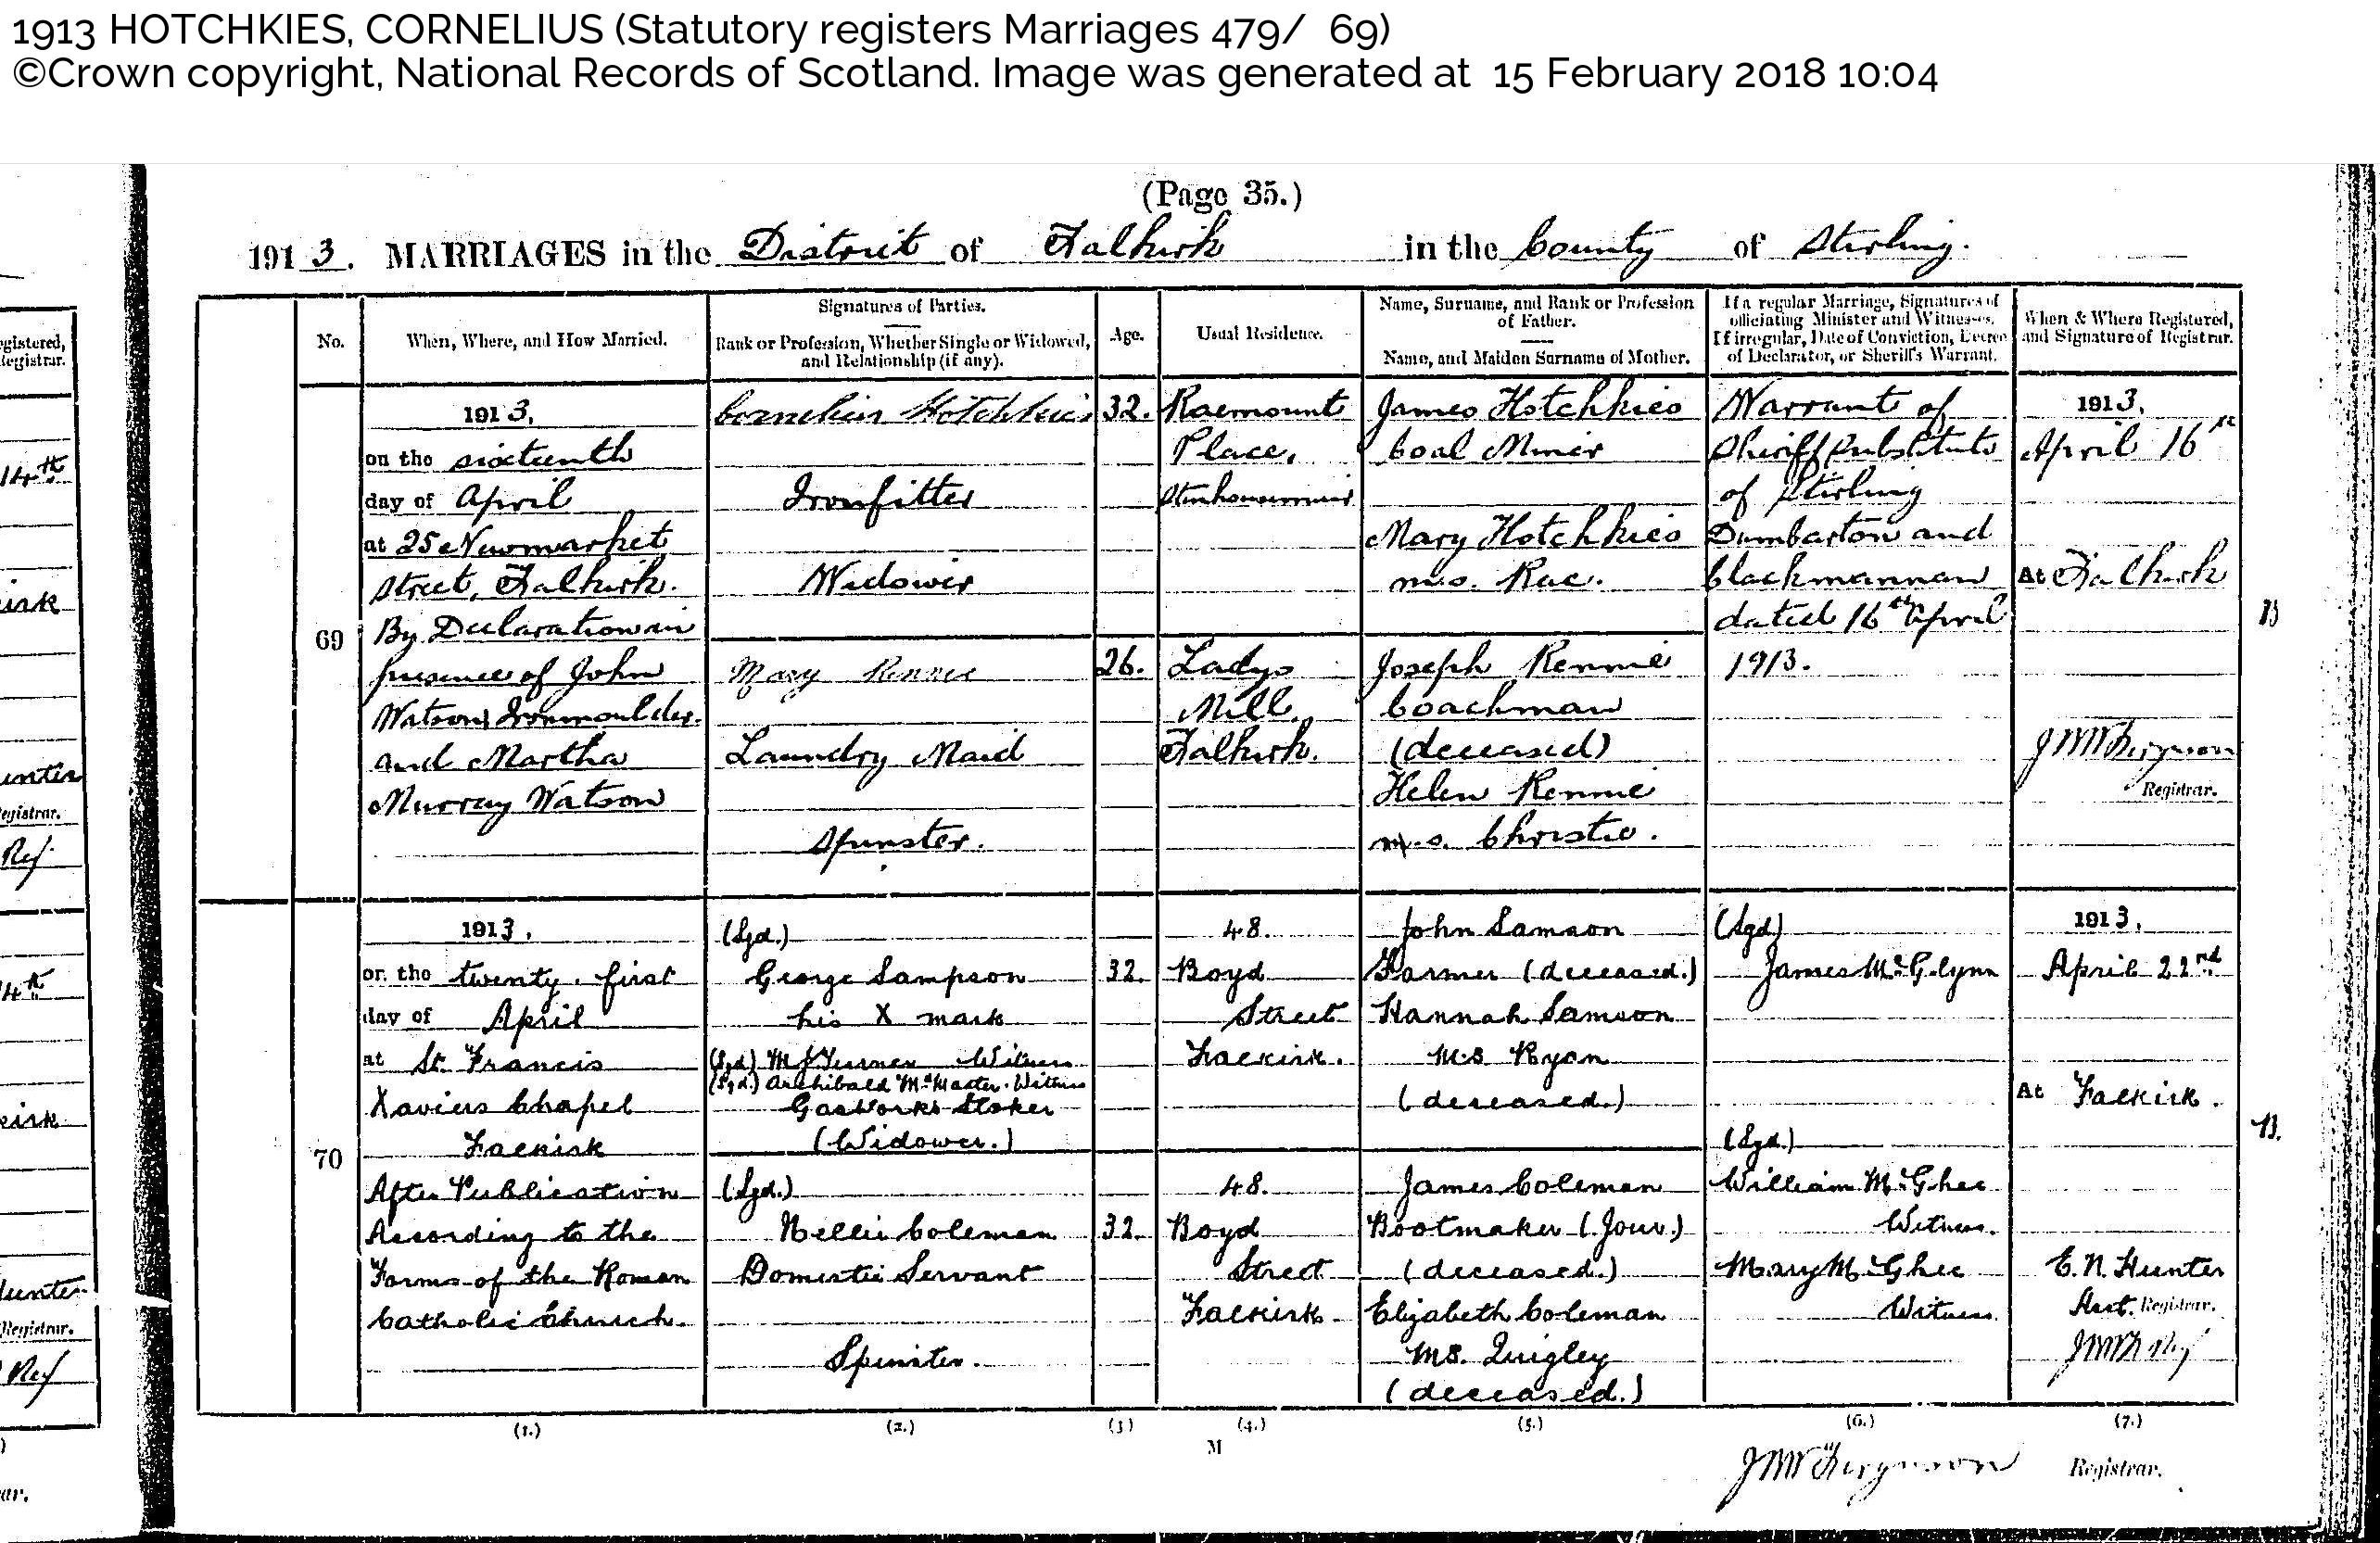 1913 HOTCHKIES, CORNELIUS (Statutory registers Marriages 479/ 69)
©Crown copyright, National Records of Scotland. Image was generated at 15 February 2018 10:04
(Page 35.)
1913. MARRIAGES in the District of Falkirk in the County of Stirling.
No.
When, Where, and How Married.
Signatures of Parties.
Rank or Profession, Whether Single or Widowed,
and Relationship (if any).
Age.
Usual Residence.
Name, Surname, and Rank or Profession
of Father.
Name, and Maiden Surname of Mother.
If a regular Marriage, Signatures of
officiating Minister and Witnesses.
If irregular, Date of Conviction, Decree
of Declarator, or Sheriff's Warrant.
When & Where Registered,
and Signature of Registrar.
69
1913,
on the sixteenth
day of April
at 25 Newmarket
Street, Falkirk.
By Declaration in
presence of John
Watson, Ironmoulder.
and Martha
Murray Watson
Cornelius Hotchkies
Ironfitter
Widower
32.
Raemount
Place,
Stenhousemuir
James Hotchkies
Coal Miner
Mary Hotchkies
m.s. Rae.
Mary Rennie
Laundry Maid
Spinster.
26.
Ladys
Mill,
Falkirk.
Joseph Rennie
Coachman
(deceased)
Helen Rennie
m.s. Christie.
Warrant of
Sheriff Substitute
of Stirling
Dumbarton and
Clackmannan
dated 16th April
1913.
1913,
April 16th
At Falkirk
J W Ferguson
Registrar.
B
70
1913,
on the twenty-first
day of April
at St. Francis
Xaviers Chapel
Falkirk
After Publication
According to the
Forms of the Roman
Catholic Church.
(Sgd.)
George Sampson
his X mark
(Sgd.) M J Turner Witness
(Sgd.) Archibald McMaster. Witness
Gasworks Stoker
(Widower.)
32.
48.
Boyd
Street
Falkirk.
John Samson
Farmer (deceased.)
Hannah Samson
M.S. Ryan
(deceased.)
(Sgd.)
Nellie Coleman
Domestic Servant
Spinster.
32.
48.
Boyd
Street
Falkirk
James Coleman
Bootmaker (Jour.)
(deceased.)
Elizabeth Coleman
M.S. Quigley
(deceased.)
(Sgd.)
James McGlynn
(Sgd.)
William McGhee
Witness.
Mary McGhee
Witness
1913,
April 22nd
At Falkirk.
E. N. Hunter
Asst. Registrar.
B.
(1.) (2.) (3) (4.) (5.) (6.) (7.)
M
J W Ferguson Registrar.